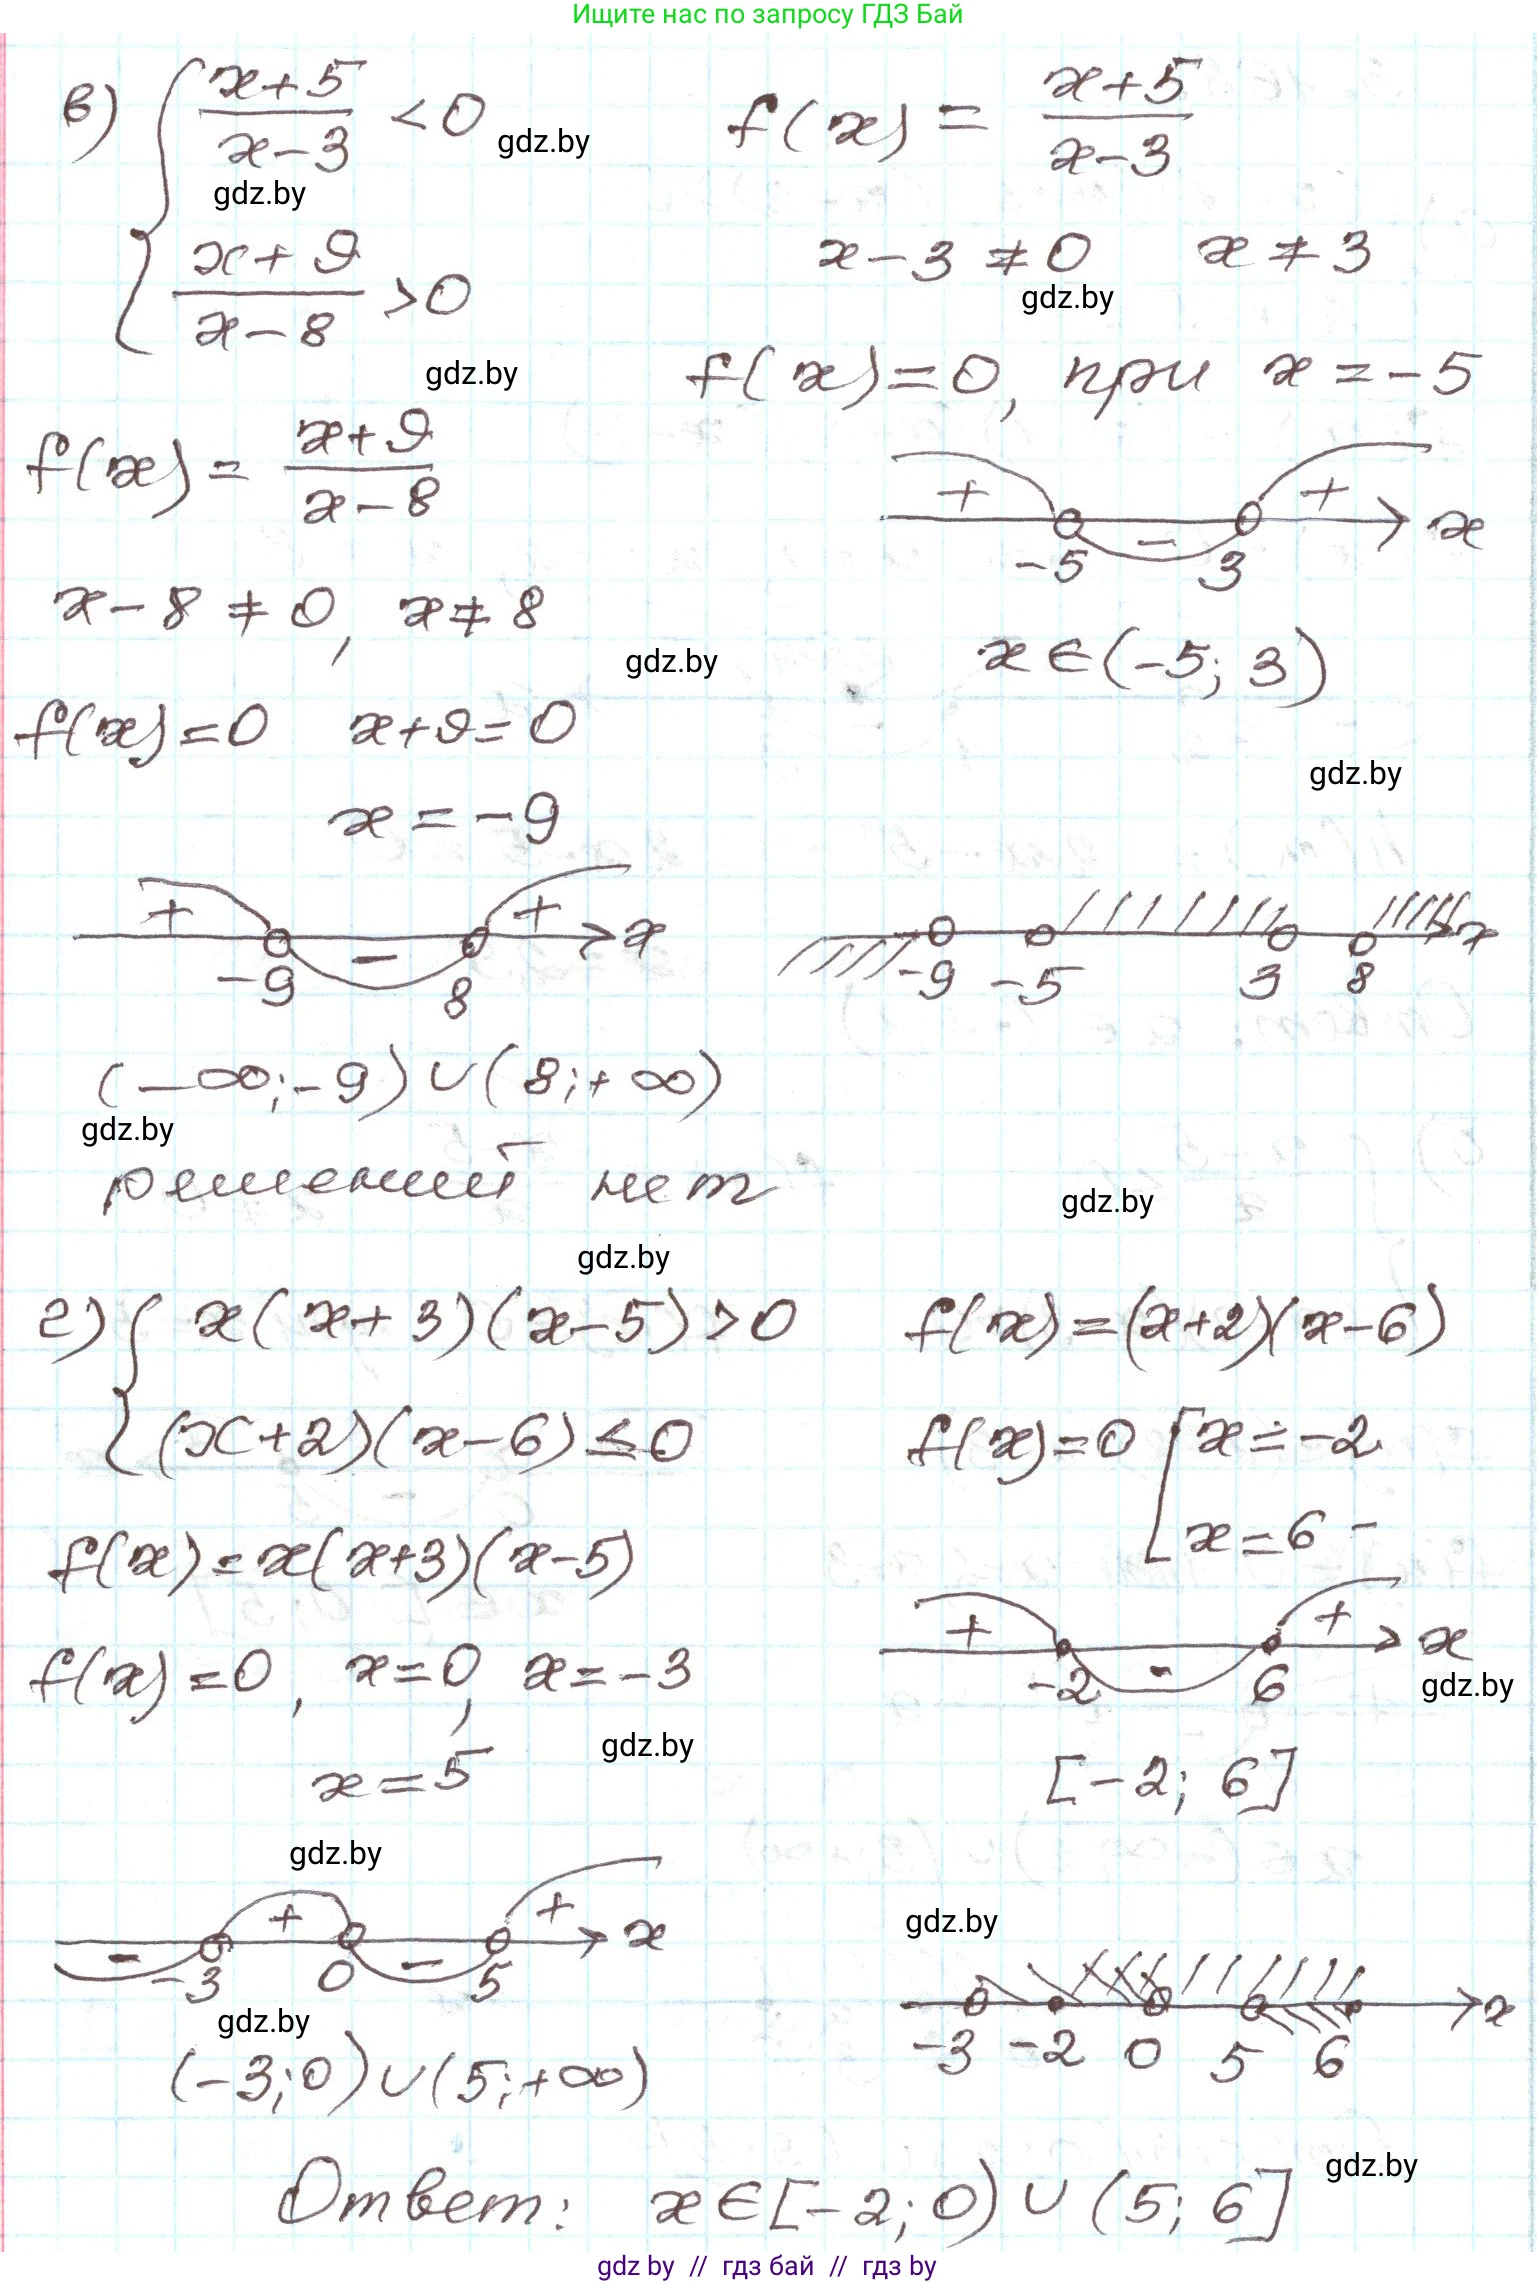 Ищите нас по запросу ГДЗ Бай
в) { (x+5)/(x−3) < 0
gdz.by
f(x) = (x+5)/(x−3)
gdz.by
(x+9)/(x−8) > 0
x−3 ≠ 0   x ≠ 3
gdz.by
gdz.by
f(x) = 0, при x = −5
f(x) = (x+9)/(x−8)
+ − + x
−5 3
x−8 ≠ 0, x ≠ 8
gdz.by
x ∈ (−5; 3)
f(x) = 0   x+9 = 0
gdz.by
x = −9
+ − + x
−9 8
−9 −5 3 8 x
(−∞; −9) ∪ (8; +∞)
gdz.by
решений нет
gdz.by
gdz.by
г) { x(x+3)(x−5) > 0
f(x) = (x+2)(x−6)
(x+2)(x−6) ≤ 0
f(x) = 0 [ x = −2
x = 6
f(x) = x(x+3)(x−5)
+ − + x
−2 6
f(x) = 0, x = 0, x = −3
gdz.by
gdz.by
x = 5
[−2; 6]
gdz.by
− + − + x
−3 0 5
gdz.by
−3 −2 0 5 6 x
gdz.by
(−3; 0) ∪ (5; +∞)
gdz.by
Ответ: x ∈ [−2; 0) ∪ (5; 6]
gdz by // гдз бай // гдз by